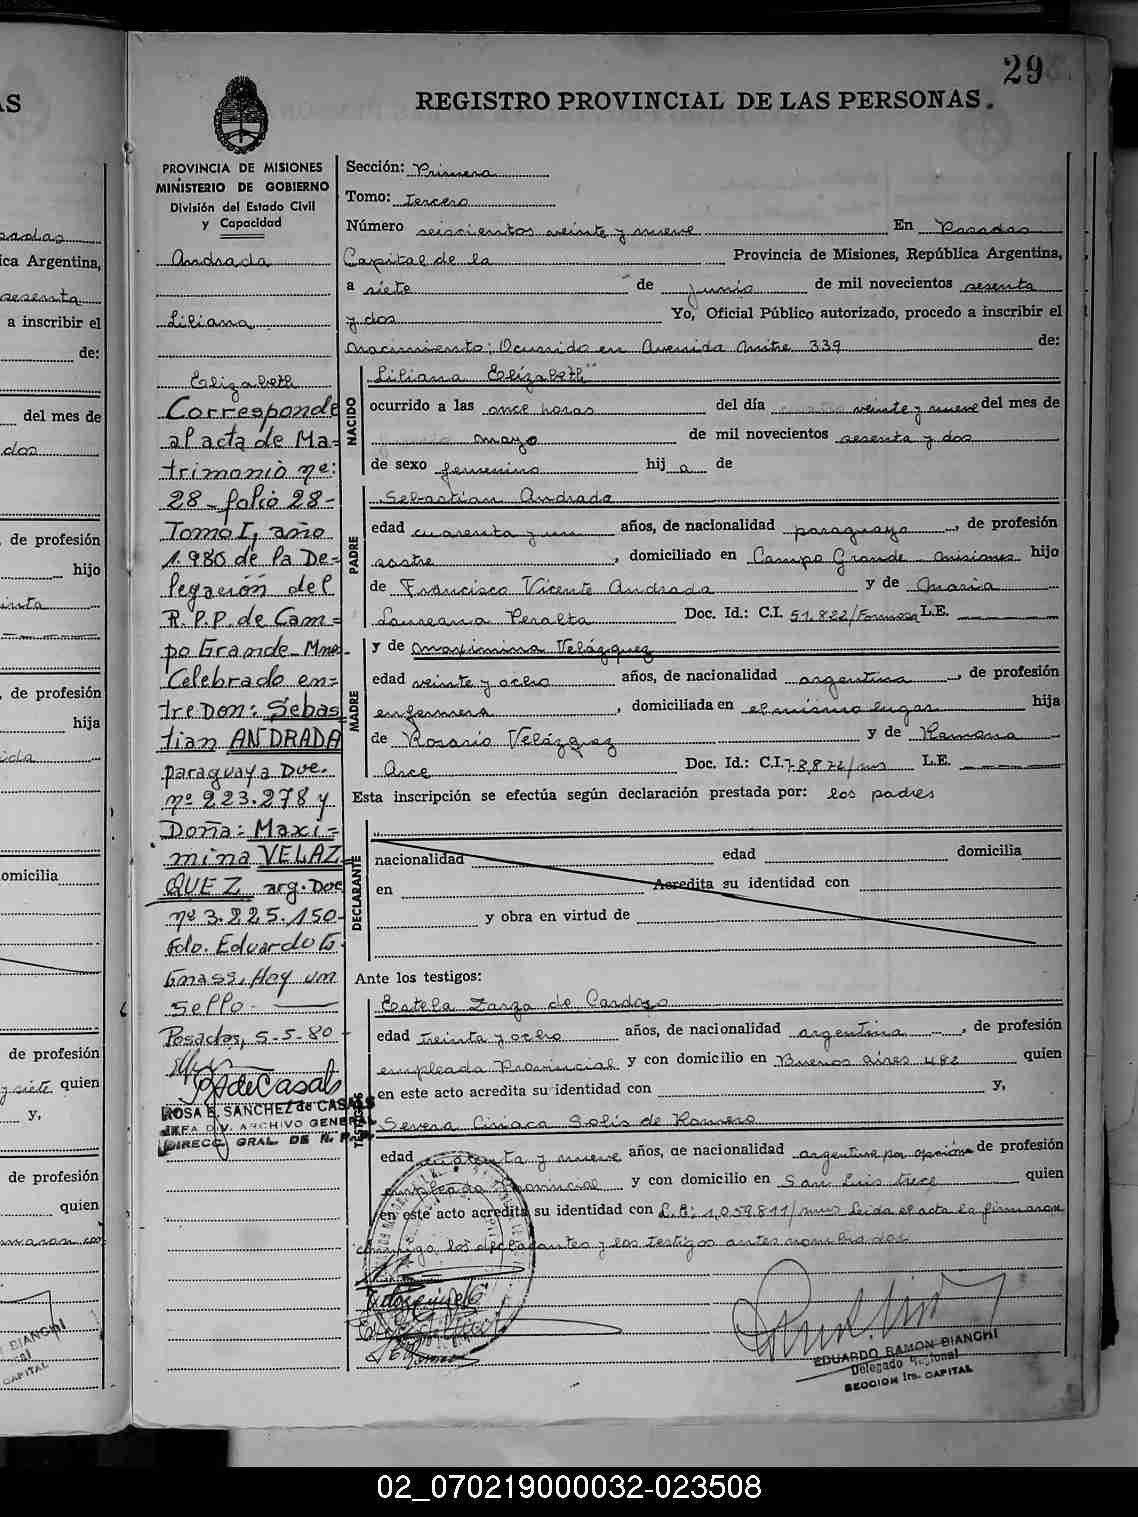 29
REGISTRO PROVINCIAL DE LAS PERSONAS.
PROVINCIA DE MISIONES
MINISTERIO DE GOBIERNO
División del Estado Civil
y Capacidad
Andrada
Liliana
Elizabeth
Corresponde
al acta de Ma-
trimonio nº:
28 - folio 28 -
Tomo I, año
1.980 de la De-
legación del
R.P.P. de Cam-
po Grande - Mnes-
Celebrado en-
tre Don: Sebas
tian ANDRADA
paraguaya Doc.
nº 223.278 y
Doña: Maxi-
mina VELAZ
QUEZ arg. Doc
nº 3.225.150-
Fdo. Eduardo G.
Hay un
Sello -
Posadas, 5-5-80
ROSA E. SANCHEZ de CASALS
JEFA DIV. ARCHIVO GENERAL
DIRECC. GRAL. DE R. P. P.
Sección: Primera
Tomo: Tercero
Número seiscientos veinte y nueve En Posadas
Capital de la Provincia de Misiones, República Argentina,
a siete de junio de mil novecientos sesenta
y dos Yo, Oficial Público autorizado, procedo a inscribir el
nacimiento: Ocurrido en Avenida Mitre 339 de:
NACIDO
Liliana Elizabeth
ocurrido a las once horas del día veinte y nueve del mes de
mayo de mil novecientos sesenta y dos
de sexo femenino hij a de
PADRE
Sebastian Andrada
edad cuarenta y un años, de nacionalidad paraguaya, de profesión
sastre, domiciliado en Campo Grande Misiones hijo
de Francisco Vicente Andrada y de Maria
Laureana Peralta Doc. Id.: C.I. 51.822/Formosa L.E.
MADRE
y de Maximina Velázquez
edad veinte y ocho años, de nacionalidad argentina, de profesión
enfermera, domiciliada en el mismo lugar hija
de Rosario Velázquez y de Ramona
Arce Doc. Id.: C.I. 78.872/ms L.E.
Esta inscripción se efectúa según declaración prestada por: los padres
DECLARANTE
nacionalidad edad domicilia
en Acredita su identidad con
y obra en virtud de
Ante los testigos:
TESTIGOS
Estela Zarza de Cardozo
edad treinta y ocho años, de nacionalidad argentina, de profesión
empleada Provincial y con domicilio en Buenos Aires 482 quien
en este acto acredita su identidad con y,
Severa Ciriaca Solis de Romero
edad cuarenta y nueve años, de nacionalidad argentina por opción de profesión
empleada Provincial y con domicilio en San Luis trece quien
en este acto acredita su identidad con L.A: 1.059.811/mns leida el acta la firmaron
conmigo, los declarantes y los testigos antes nombrados
EDUARDO RAMON BIANCHI
Delegado Regional
SECCION 1ra. CAPITAL
02_070219000032-023508